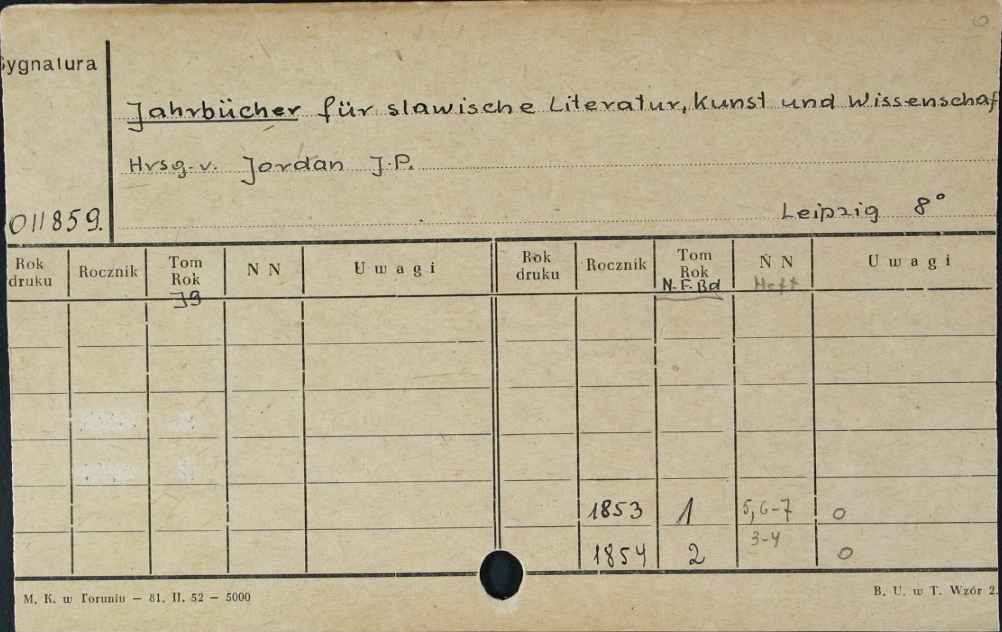 Sygnatura
Jahrbücher für slawische Literatur, Kunst und Wissenschaf
Hrsg. v. Jordan J.P.
011859.
Leipzig 8°
Rok druku Rocznik Tom Rok N N Uwagi Rok druku Rocznik Tom Rok N N Uwagi
Jg N.F.Bd Heft
1853 1 5,6-7 0
1854 2 3-4 0
M. K. w Toruniu – 81. II. 52 – 5000
B. U. w T. Wzór 2.